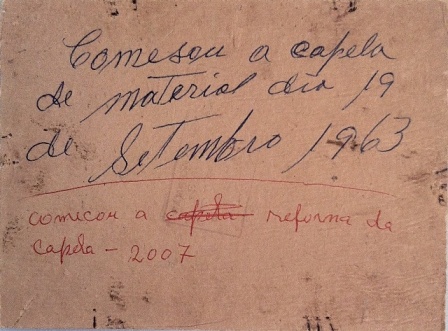 Comesou a capela
de material dia 19
de Setembro 1963
comecou a capela reforma da
capela - 2007